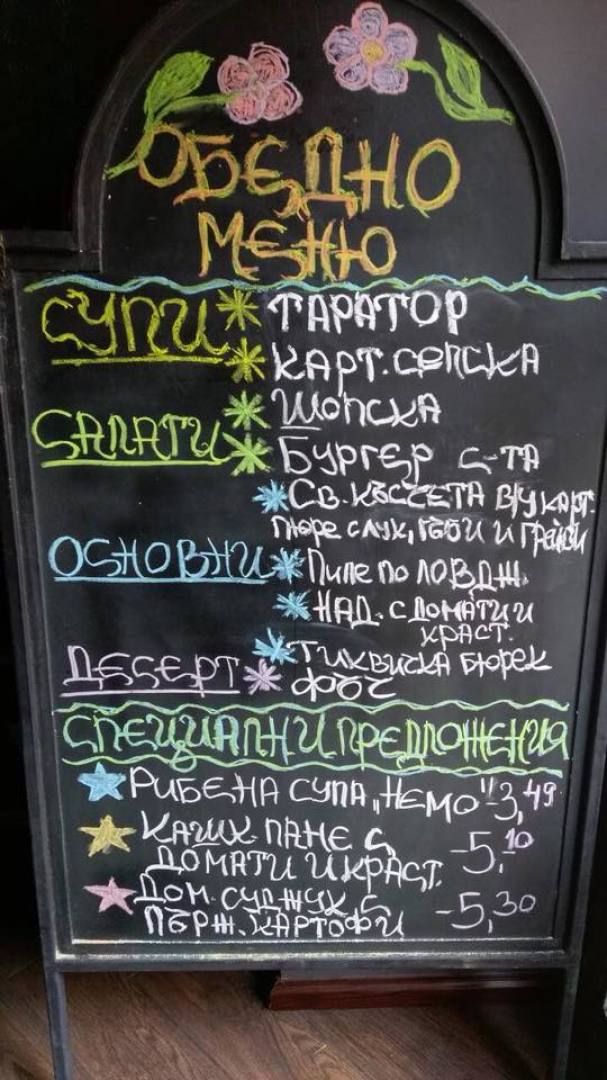 ОБЕДНО
МЕНЮ
СУПИ * ТАРАТОР
* КАРТ. СЕЛСКА
САЛАТИ * ШОПСКА
* БУРГЕР С-ТА
* СВ. КЪСЧЕТА В/У КАРТ.
ПЮРЕ С ЛУК, ГЪБИ И ГРАЙСИ
ОСНОВНИ * ПИЛЕ ПО ЛОВДЖ.
* НАД. С ДОМАТИ И
КРАСТ.
* ТИКВИЧКА БЮРЕК
ДЕСЕРТ *
СПЕЦИАЛНИ ПРЕДЛОЖЕНИЯ
РИБЕНА СУПА „НЕМО" - 3,49
КАШК. ПАНЕ С - 5,10
ДОМАТИ И КРАСТ.
ДОМ. СУДЖУК С - 5,30
ПЪРЖ. КАРТОФИ